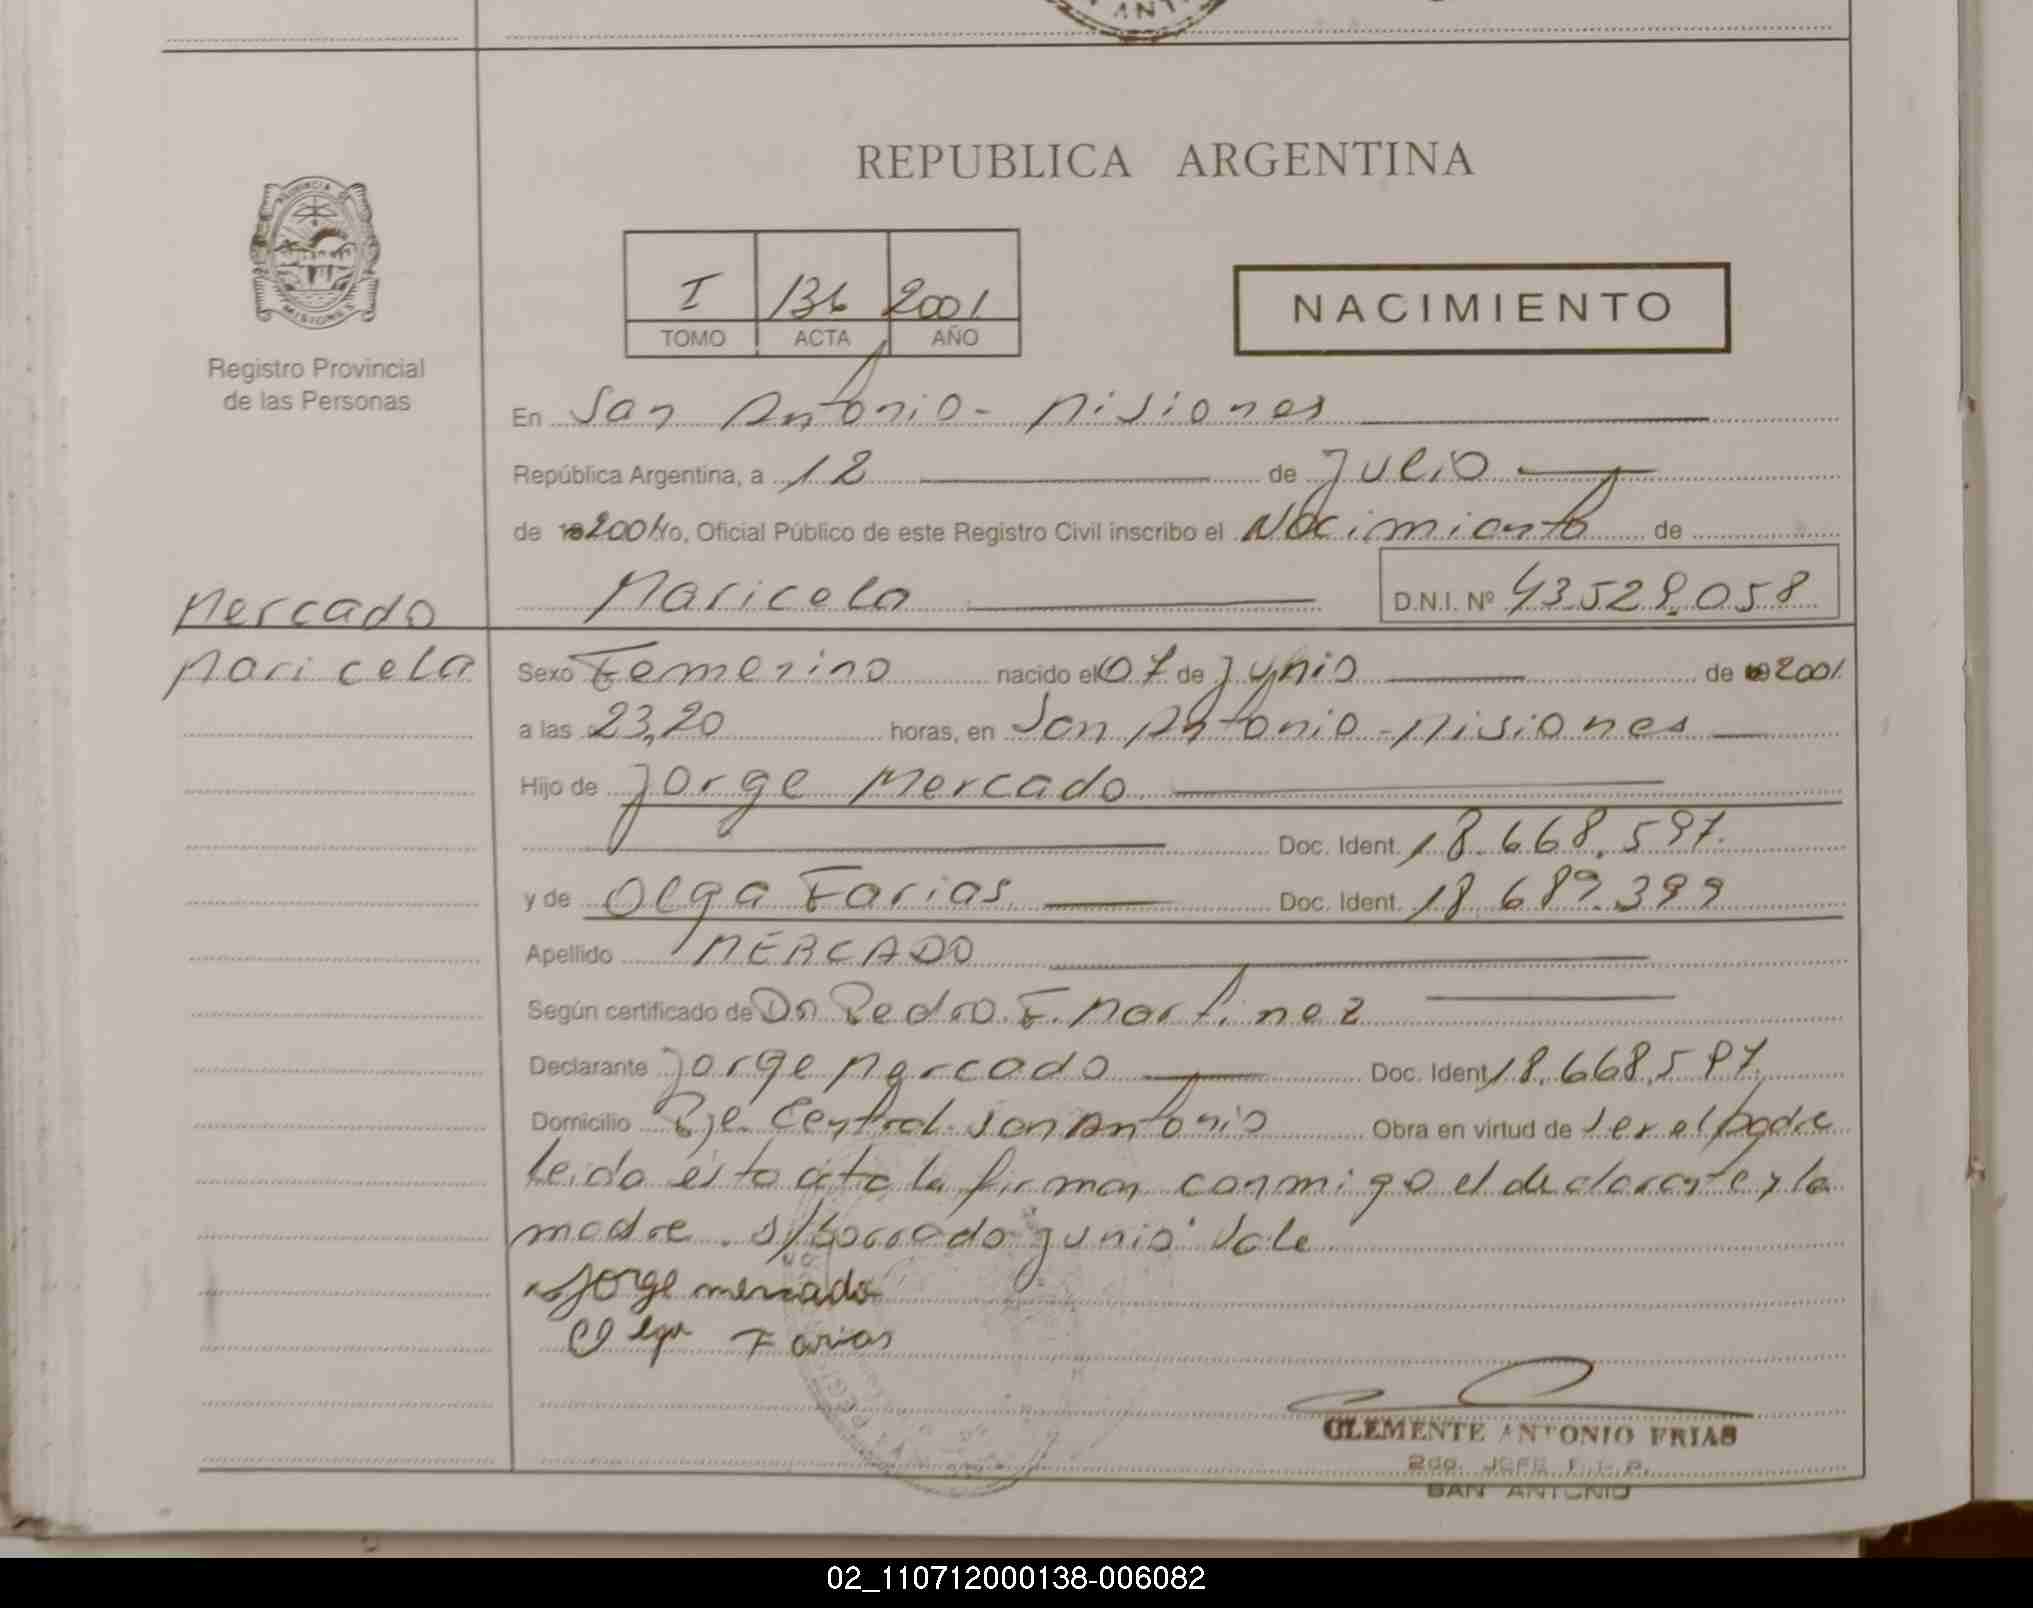 REPUBLICA ARGENTINA
PROVINCIA
MISIONES
Registro Provincial
de las Personas
I 136 2001
TOMO ACTA AÑO
NACIMIENTO
En San Antonio - Misiones
República Argentina, a 12 de Julio
de 2001 Yo, Oficial Público de este Registro Civil inscribo el Nacimiento de
Maricela D.N.I. Nº 43.529.058
Mercado
Maricela
Sexo Femenino nacido el 07 de Junio de 2001
a las 23,20 horas, en San Antonio - Misiones
Hijo de Jorge Mercado
Doc. Ident. 18.668.597.
y de Olga Farias Doc. Ident. 18.689.399
Apellido MERCADO
Según certificado de Dr. Pedro F. Martinez
Declarante Jorge Mercado Doc. Ident. 18.668.597.
Domicilio Pje. Central San Antonio Obra en virtud de ser el padre
leida esta acta la firman conmigo el declarante y la
madre. s/borrado "junio" Vale
Jorge mercado
Olga Farias
CLEMENTE ANTONIO FRIAS
2do. JEFE
SAN ANTONIO
02_110712000138-006082